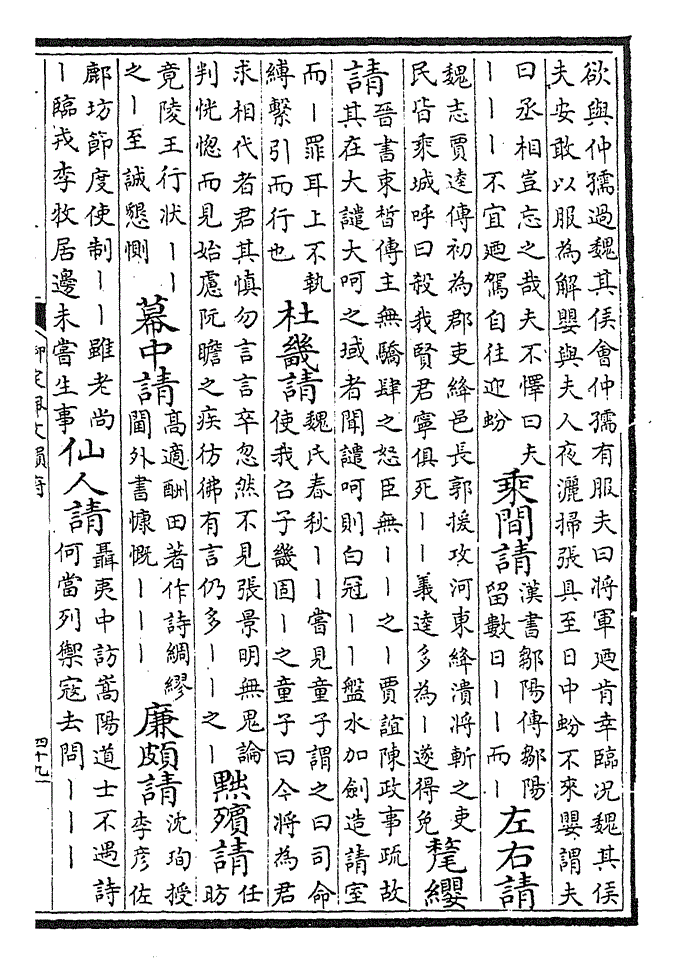 欲與仲孺過魏其侯會仲孺有服夫曰將軍廼肯幸臨况魏其侯
夫安敢以服為解嬰與夫人夜灑掃張具至日中蚡不來嬰謂夫
曰丞相豈忘之哉夫不懌曰夫
丨丨丨不宜廼駕自往迎蚡
乘間請
漢書鄒陽傳鄒陽
留數日丨丨而丨
左右請
魏志賈逵傳初為郡吏絳邑長郭援攻河東絳潰將斬之吏
民皆乘城呼曰殺我賢君寧俱死丨丨義逵多為丨遂得免
氂纓
請
晉書束晳傳主無驕肆之怒臣無丨丨之丨賈誼陳政事疏故
其在大譴大呵之域者聞譴呵則白冠丨丨盤水加劍造請室
而丨罪耳上不執
縛繫引而行也
杜畿請
魏氏春秋丨丨嘗見童子謂之曰司命
使我召子畿固丨之童子曰今將為君
求相代者君其慎勿言言卒忽然不見張景明無鬼論
判恍惚而見始慮阮瞻之疾彷彿有言仍多丨丨之丨
黜殯請
任
昉
竟陵王行狀丨丨
之丨至誠懇惻
幕中請
高適酬田著作詩綢繆
閫外書慷慨丨丨丨
廉頗請
沈珣授
李彥佐
鄜坊節度使制丨丨雖老尚
丨臨戎李牧居邊未嘗生事
仙人請
聶夷中訪嵩陽道士不遇詩
何當列禦寇去問丨丨丨
四十九